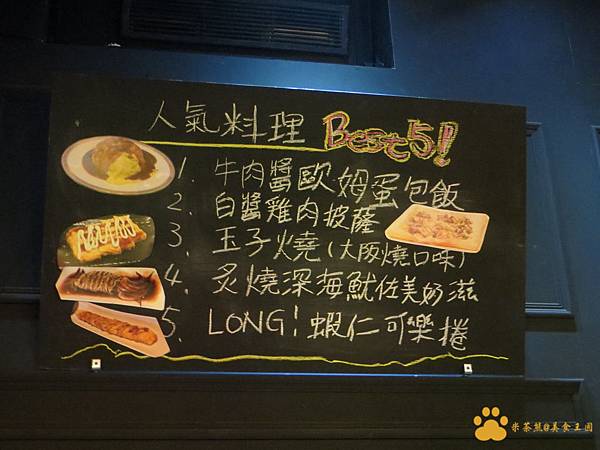 人氣料理 Best 5!
1. 牛肉醬歐姆蛋包飯
2. 白醬雞肉披薩
3. 玉子燒(大阪燒口味)
4. 炙燒深海魷佐美奶滋
5. LONG! 蝦仁可樂捲
米茶熊@美食王國